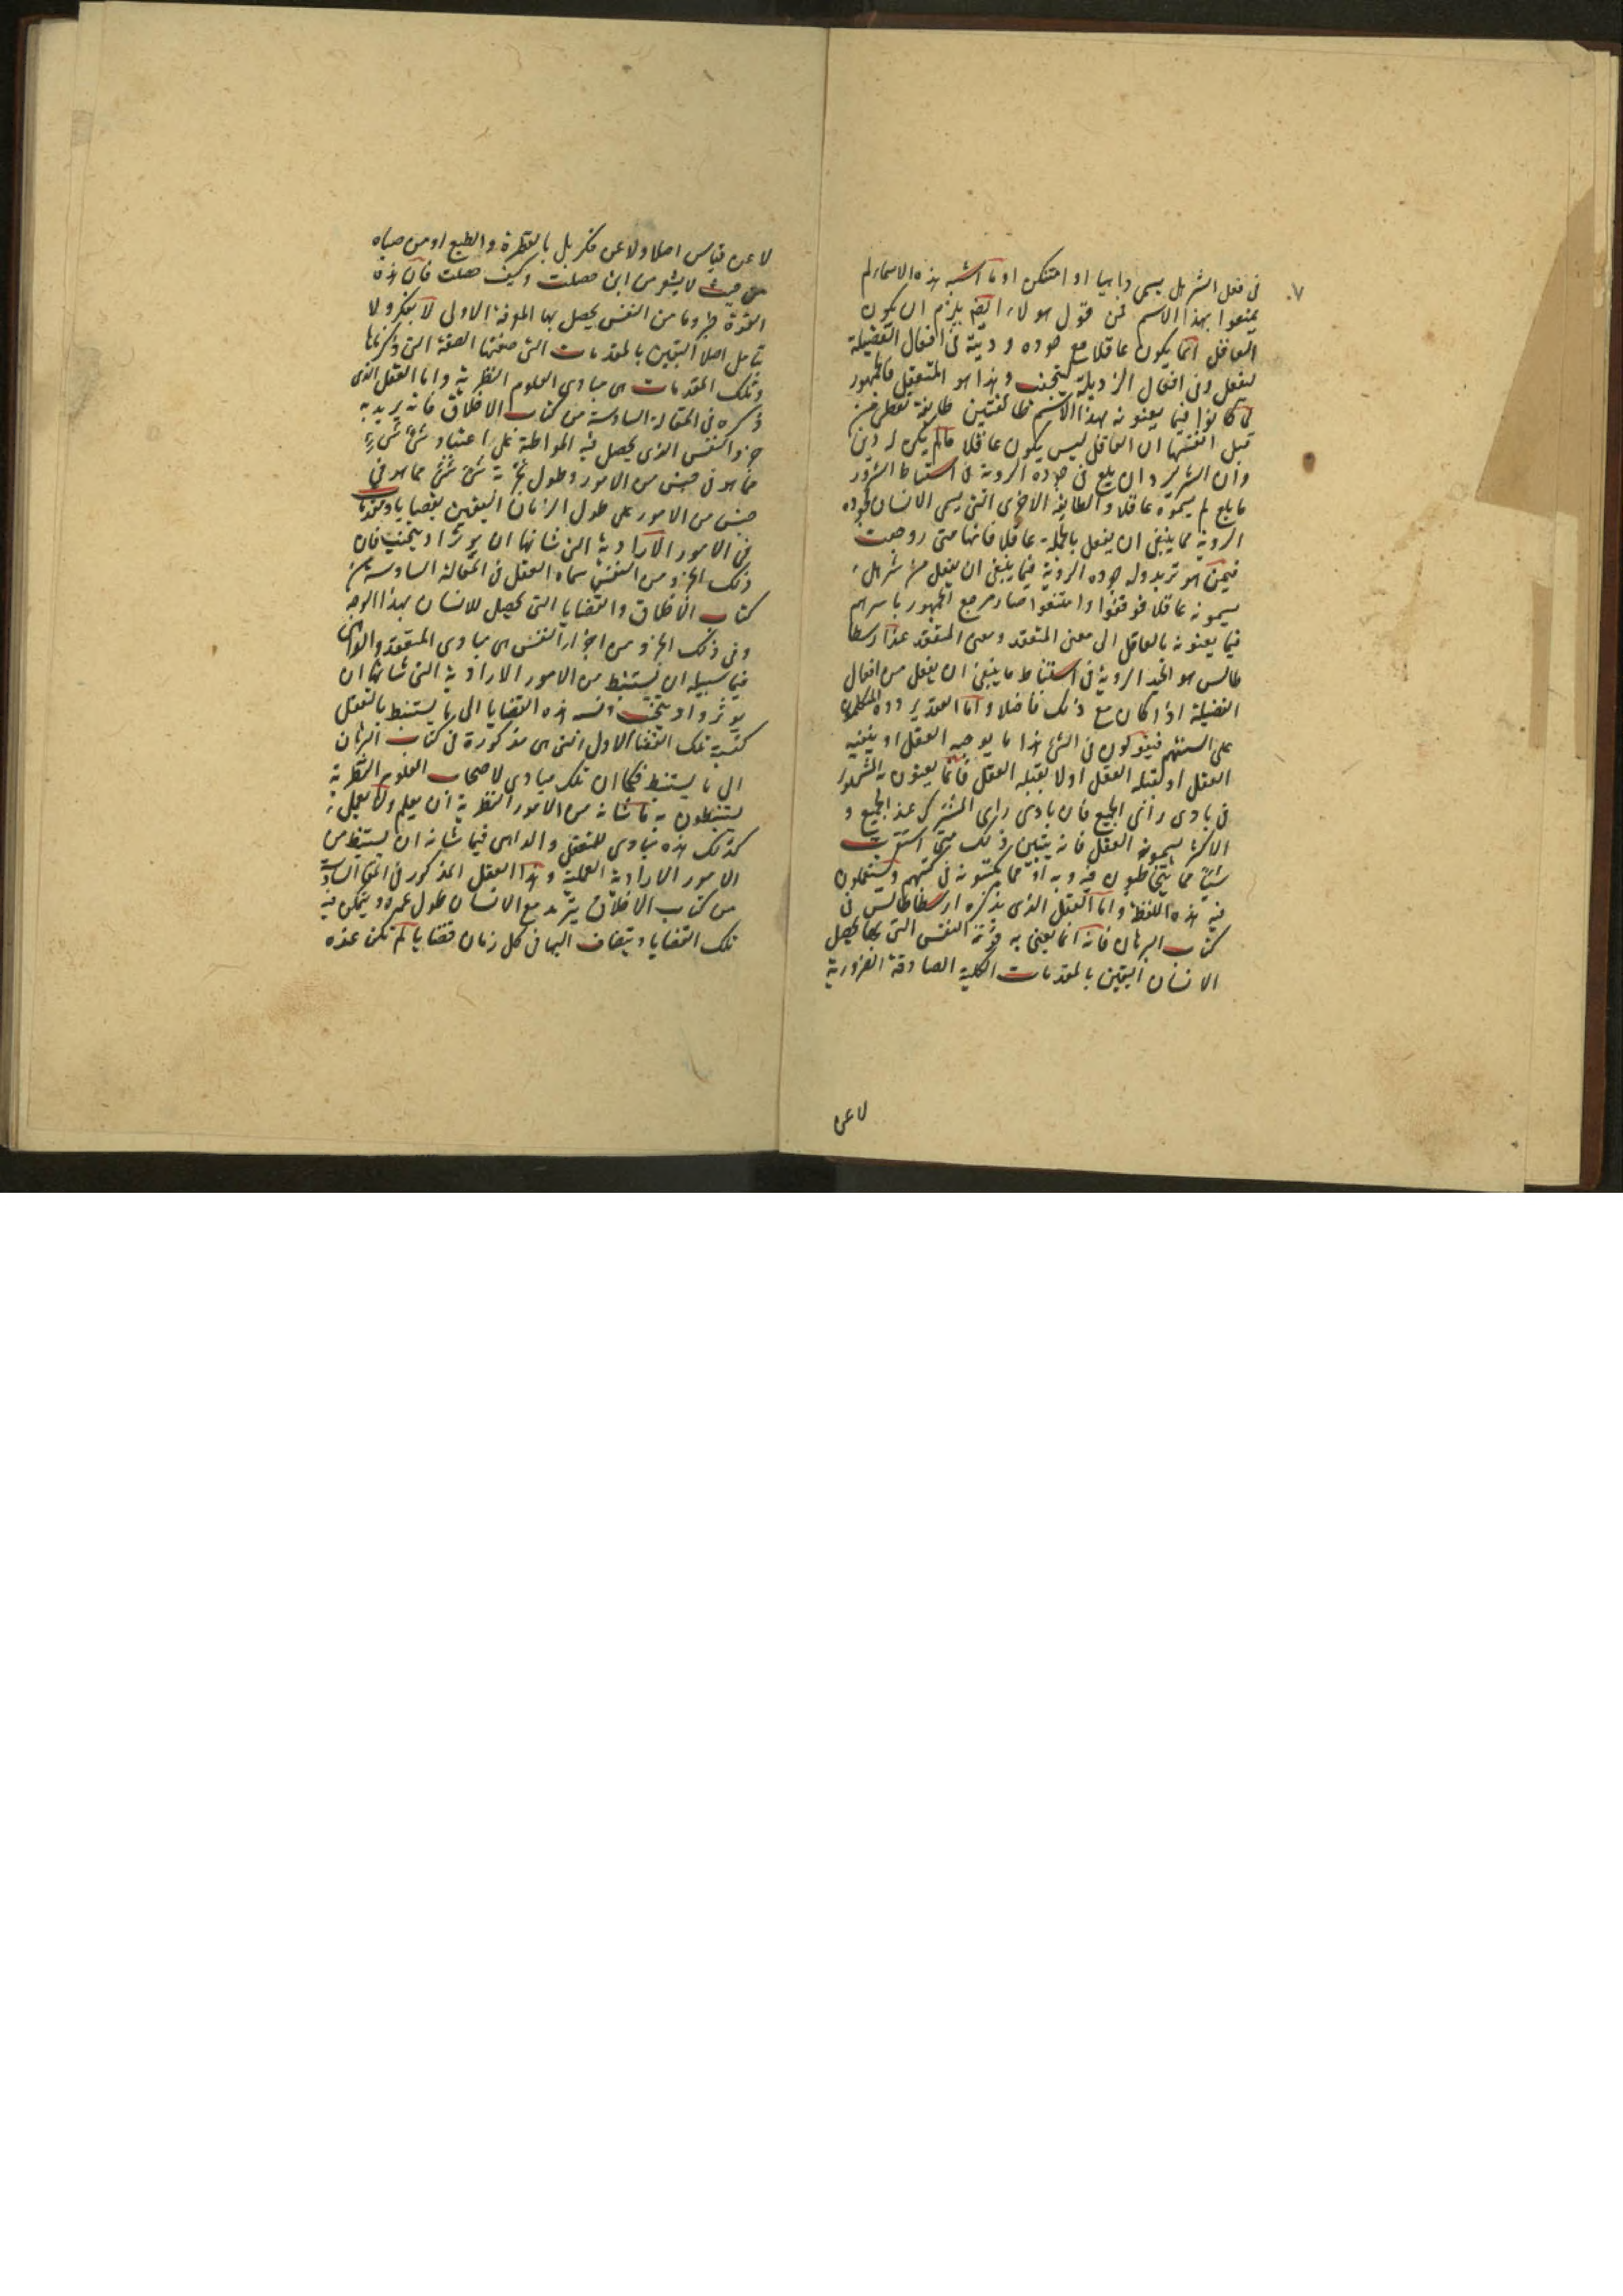 ٧.
فى فعل الشر بل يسمى داهيا او او ما اشبه هذه الاسماء لم
يمنعوا بهذا الاسم فمن قول هولاء ايضا يلزم ان يكون
العاقل انما يكون عاقلا مع جوده رويته فى افعال الفضيلة
لتفعل وفى افعال الرذيلة لتجتنب وهذا هو المتعقل فالجمهور
لما كانوا فيما يعنونه بهذا الاسم طائفتين طايفة تعطى من
قبل انفسها ان العاقل ليس يكون عاقلا مالم يكن له دين
وان الشرير وان بلغ فى جوده الروية فى استنباط الشرور
ما بلغ لم يسموه عاقلا والطايفة الاخرى التى يسمى الانسان بجوده
الروية مما ينبغى ان يفعل بالجملة عاقلا فانها متى روجعت
فيمن هو شرير وله جوده الروية فيما ينبغى ان يفعل من شر هل
يسمونه عاقلا فوقفوا وامتنعوا صار مرجع الجمهور باسرهم
فيما يعنونه بالعاقل الى معنى المتعقل ومعنى المتعقل عند ارسطا
طاليس هو الجيد الروية فى استنباط ما ينبغى ان يفعل من افعال
الفضيلة اذا كان مع ذلك فاضلا واما العقل يردده المتكلمون
على السنتهم فيقولون فى الشئ هذا ما يوجبه العقل او ينفيه
العقل او يقبله العقل او لا يقبله العقل فانما يعنون به المشهور
فى بادى رأى الجميع فان بادى راى المشترك عند الجميع و
الاكثر يسمونه العقل فانه يتبين ذلك متى استقريت
شيئا مما يتخاطبون فيه وبه او مما يكتبونه فى كتبهم ويستعملون
فيه هذه اللفظة واما العقل الذى يذكره ارسطاطاليس فى
كتاب البرهان فانه انما يعنى به قوة النفس التى بها يحصل
الانسان اليقين بالمقدمات الكلية الصادقة الضرورية
لا عن
لا عن قياس اصلا ولا عن فكر بل بالفطرة والطبع او من صباه
من حيث لا يشعر من اين حصلت وكيف حصلت فان هذه
القوة جزء ما من النفس يحصل بها المعرفة الاولى لا بفكر ولا
بتامل اصلا اليقين بالمقدمات التى صفتها الصفة التى ذكرناها
وتلك المقدمات هى مبادى العلوم النظرية واما العقل الذى
ذكره فى المقالة السادسة من كتاب الاخلاق فانه يريد به
جزو النفس الذى يحصل فيه المواظبة على اعتياد شئ شئ
مما هو فى جنس من الامور وطول تجربة شئ شئ مما هو فى
جنس من الامور على طول الزمان اليقين بقضايا ومقدمات
فى الامور الارادية التى شانها ان يوثر او يتجنب فان
ذلك الجزو من النفس سماه العقل فى المقالة السادسة من
كتاب الاخلاق والقضايا التى تحصل للانسان بهذا الوجه
وفى ذلك الجزو من اجزاء النفس هى مبادى المتعقل والداهى
فيما سبيله ان يستنبط من الامور الارادية التى شانها ان
يوثر او يتجنب ونسبة هذه القضايا الى ما يستنبط بالتعقل
كنسبة تلك القضايا الاول التى هى مذكورة فى كتاب البرهان
الى ما يستنبط فكما ان تلك مبادى لاصحاب العلوم النظرية
يستنبطون به ما شانه من الامور النظرية ان يعلم ولا يعمل به
كذلك هذه مبادى للمتعقل والداهى فيما شانه ان يستنبط من
الامور الارادية العملية وهذا العقل المذكور فى المقالة السادسة
من كتاب الاخلاق يتزيد مع الانسان طول عمره ويتمكن فيه
تلك القضايا ويتضاف اليها فى كل زمان قضايا لم تكن عنده